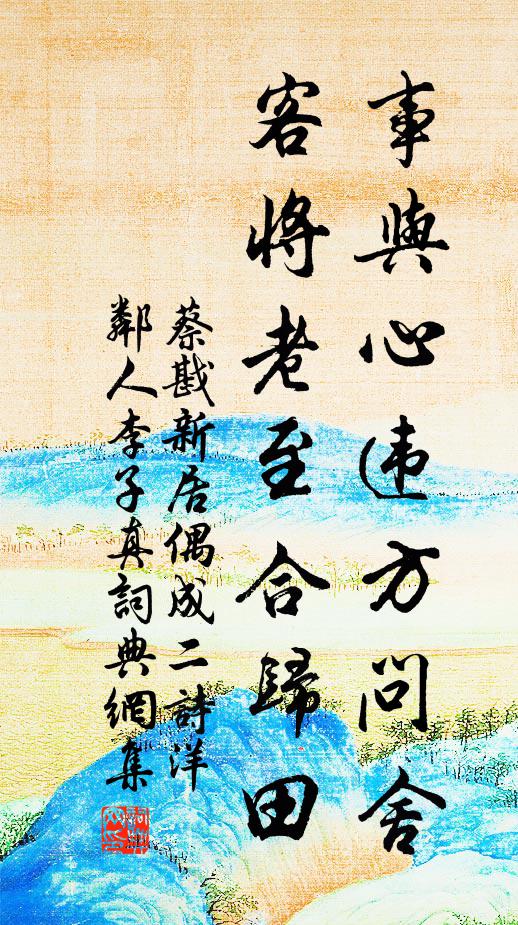 事與心违方問舍
客將老至合歸田
蔡戡新居偶成二詩洋
鄰人李子真詞典網集